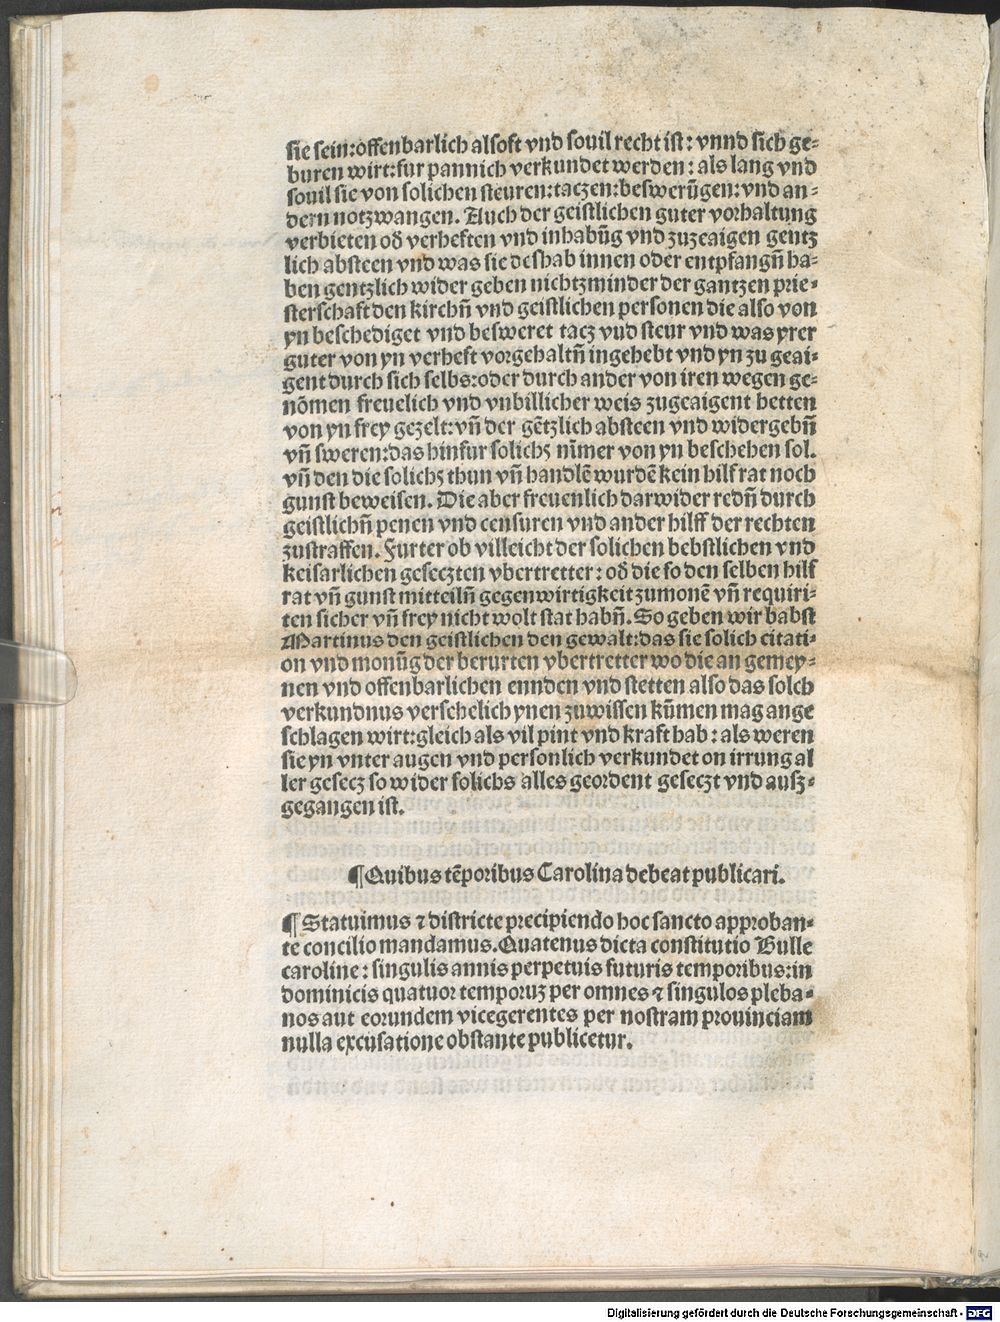 sie sein: offenbarlich als oft vnd souil recht ist: vnnd sich ge-
buren wirt: fur pannich verkundet werden: als lang vnd
souil sie von solichen steuren: taczen: beswerūgen: vnd an-
dern notzwangen. Auch der geistlichen guter vorhaltung
verbieten od̄ verheften vnd inhabūg vnd zuzeaigen gentz
lich absteen vnd was sie deshab innen oder entpfangn̄ ha-
ben gentzlich wider geben nichtzminder der gantzen prie-
sterschaft den kirchn̄ vnd geistlichen personen die also von
yn beschediget vnd besweret tacz vnd steur vnd was yrer
guter von yn verheft vorgehaltn̄ ingehebt vnd yn zu geai-
gent durch sich selbs: oder durch ander von iren wegen ge-
nōmen freuelich vnd vnbillicher weis zugeaigent hetten
von yn frey gezelt: vn̄ der gētzlich absteen vnd widergebn̄
vn̄ sweren: das hinfur solichs nīmer von yn beschehen sol.
vn̄ den die solichs thun vn̄ handlē wurdē kein hilf rat noch
gunst beweisen. Die aber freuenlich darwider redn̄ durch
geistlichn̄ penen vnd censuren vnd ander hilff der rechten
zustraffen. Furter ob villeicht der solichen bebstlichen vnd
keisarlichen geseczten vbertretter: od̄ die so den selben hilf
rat vn̄ gunst mitteiln̄ gegenwirtigkeit zumonē vn̄ requiri-
ten sicher vn̄ frey nicht wolt stat habn̄. So geben wir babst
Martinus den geistlichen den gewalt: das sie solich citati-
on vnd monūg der berurten vbertretter wo die an gemey-
nen vnd offenbarlichen ennden vnd stetten also das solch
verkundnus verschelich ynen zuwissen kūmen mag ange
schlagen wirt: gleich als vil pint vnd kraft hab: als weren
sie yn vnter augen vnd personlich verkundet on irrung al
ler gesecz so wider solichs alles geordent geseczt vnd ausz-
gegangen ist.
¶ Quibus tēporibus Carolina debeat publicari.
¶ Statuimus ⁊ districte precipiendo hoc sancto approban-
te concilio mandamus. Quatenus dicta constitutio Bulle
caroline: singulis annis perpetuis futuris temporibus: in
dominicis quatuor temporuꝫ per omnes ⁊ singulos pleba-
nos aut eorundem vicegerentes per nostram prouinciam
nulla excusatione obstante publicetur.
Digitalisierung gefördert durch die Deutsche Forschungsgemeinschaft - DFG